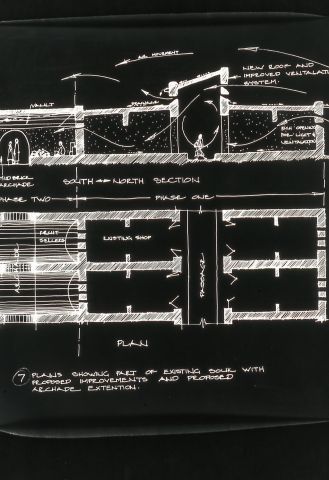 AIR MOVEMENT
NEW ROOF AND
IMPROVED VENTALATION
SYSTEM.
VAULT
DRAINAGE
HIGH OPENINGS
FOR LIGHT &
VENTALATION
MUD BRICK
ARCHADE
SOUTH NORTH SECTION
PHASE TWO
PHASE ONE
FRUIT
SELLERS
EXISTING SHOP
ARCHADE
PASSAGE
PLAN
7 PLANS SHOWING PART OF EXISTING SOUK WITH
PROPOSED IMPROVEMENTS AND PROPOSED
ARCHADE EXTENTION.